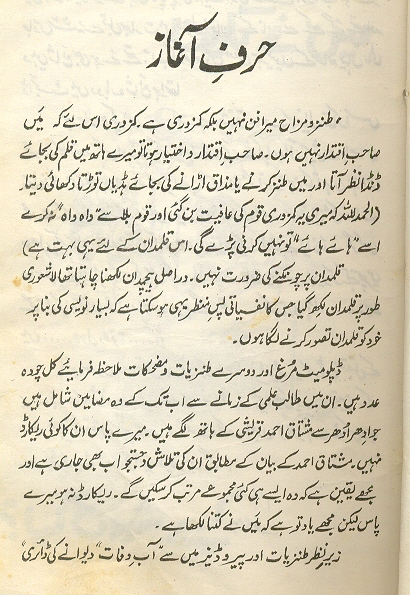 حرفِ آغاز
• طنز و مزاح میرا فن نہیں بلکہ کمزوری ہے۔ کمزوری اس لئے کہ میں
صاحبِ اقتدار نہیں ہوں۔ صاحبِ اقتدار و اختیار ہوتا تو میرے ہاتھ میں قلم کی بجائے
ڈنڈا نظر آتا اور میں طنز کرنے یا مذاق اڑانے کی بجائے ہڈیاں توڑتا دکھائی دیتا۔
(الحمد للہ کہ میری یہ کمزوری قوم کی عافیت بن گئی اور قوم بلا سے "واہ واہ" نہ کرے
اسے "ہائے ہائے" تو نہیں کرنی پڑے گی۔ اس قلمدان کے لئے یہی بہت ہے)
قلمدان پر چونکنے کی ضرورت نہیں۔ دراصل ہیچمداں لکھنا چاہتا تھا لاشعوری
طور پر قلمدان لکھ گیا جس کا نفسیاتی پس منظر یہی ہو سکتا ہے کہ بسیار نویسی کی بنا پر
خود کو قلمدان تصور کرنے لگا ہوں۔
ڈپلومیٹ مرغ اور دوسرے طنزیات و مضحکات ملاحظہ فرمایئے کل چودہ
عدد ہیں۔ ان میں طالب علمی کے زمانے سے اب تک کے وہ مضامین شامل ہیں
جو ادھر اُدھر سے مشتاق احمد قریشی کے ہاتھ لگے ہیں۔ میرے پاس ان کا کوئی ریکارڈ
نہیں۔ مشتاق احمد کے بیان کے مطابق ان کی تلاش و جستجو اب بھی جاری ہے اور
مجھے یقین ہے کہ وہ ایسے ہی کئی مجموعے مرتب کر سکیں گے۔ ریکارڈ نہ ہو میرے
پاس لیکن مجھے یاد تو ہے کہ میں نے کتنا لکھا ہے۔
زیرِ نظر طنزیات اور پیروڈیز میں سے "آبِ وفات" "دیوانے کی ڈائری"